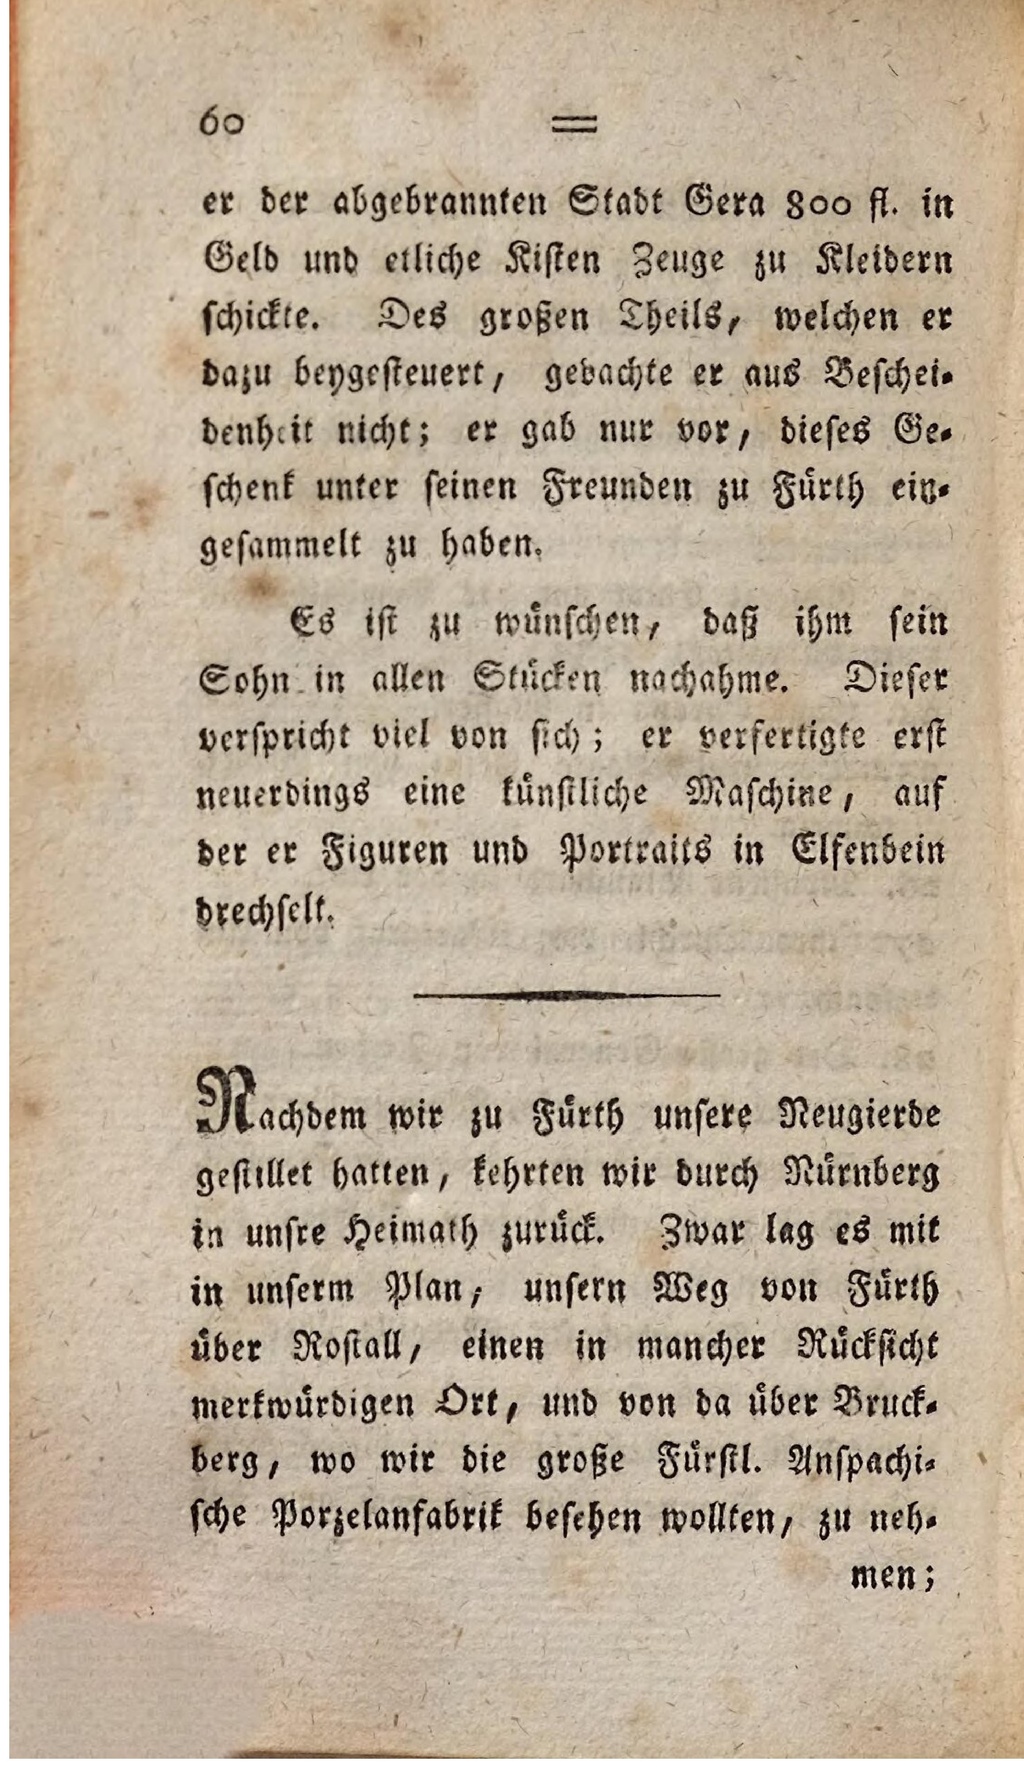 60 =
er der abgebrannten Stadt Gera 800 fl. in
Geld und etliche Kisten Zeuge zu Kleidern
schickte. Des großen Theils, welchen er
dazu beygesteuert, gedachte er aus Beschei-
denheit nicht; er gab nur vor, dieses Ge-
schenk unter seinen Freunden zu Fürth ein-
gesammelt zu haben.
Es ist zu wünschen, daß ihm sein
Sohn in allen Stücken nachahme. Dieser
verspricht viel von sich; er verfertigte erst
neuerdings eine künstliche Maschine, auf
der er Figuren und Portraits in Elfenbein
drechselt.
Nachdem wir zu Fürth unsere Neugierde
gestillet hatten, kehrten wir durch Nürnberg
in unsre Heimath zurück. Zwar lag es mit
in unserm Plan, unsern Weg von Fürth
über Rostall, einen in mancher Rücksicht
merkwürdigen Ort, und von da über Bruck-
berg, wo wir die große Fürstl. Anspachi-
sche Porzelanfabrik besehen wollten, zu neh-
men;